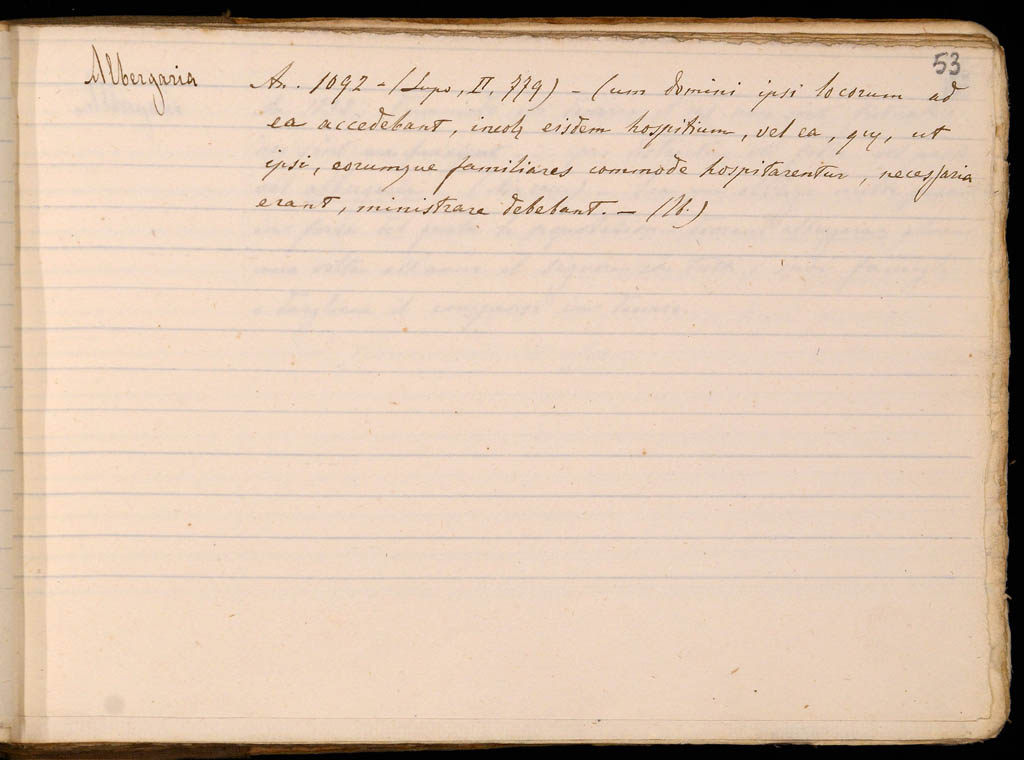 53
Albergaria
An. 1092 - (Lupo, II, 779) - Cum domini ipsi locorum ad
ea accedebant, incolę eisdem hospitium, vel ea, quę, ut
ipsi, eorumque familiares commode hospitarentur, necessaria
erant, ministrare debebant. - (Ib.)